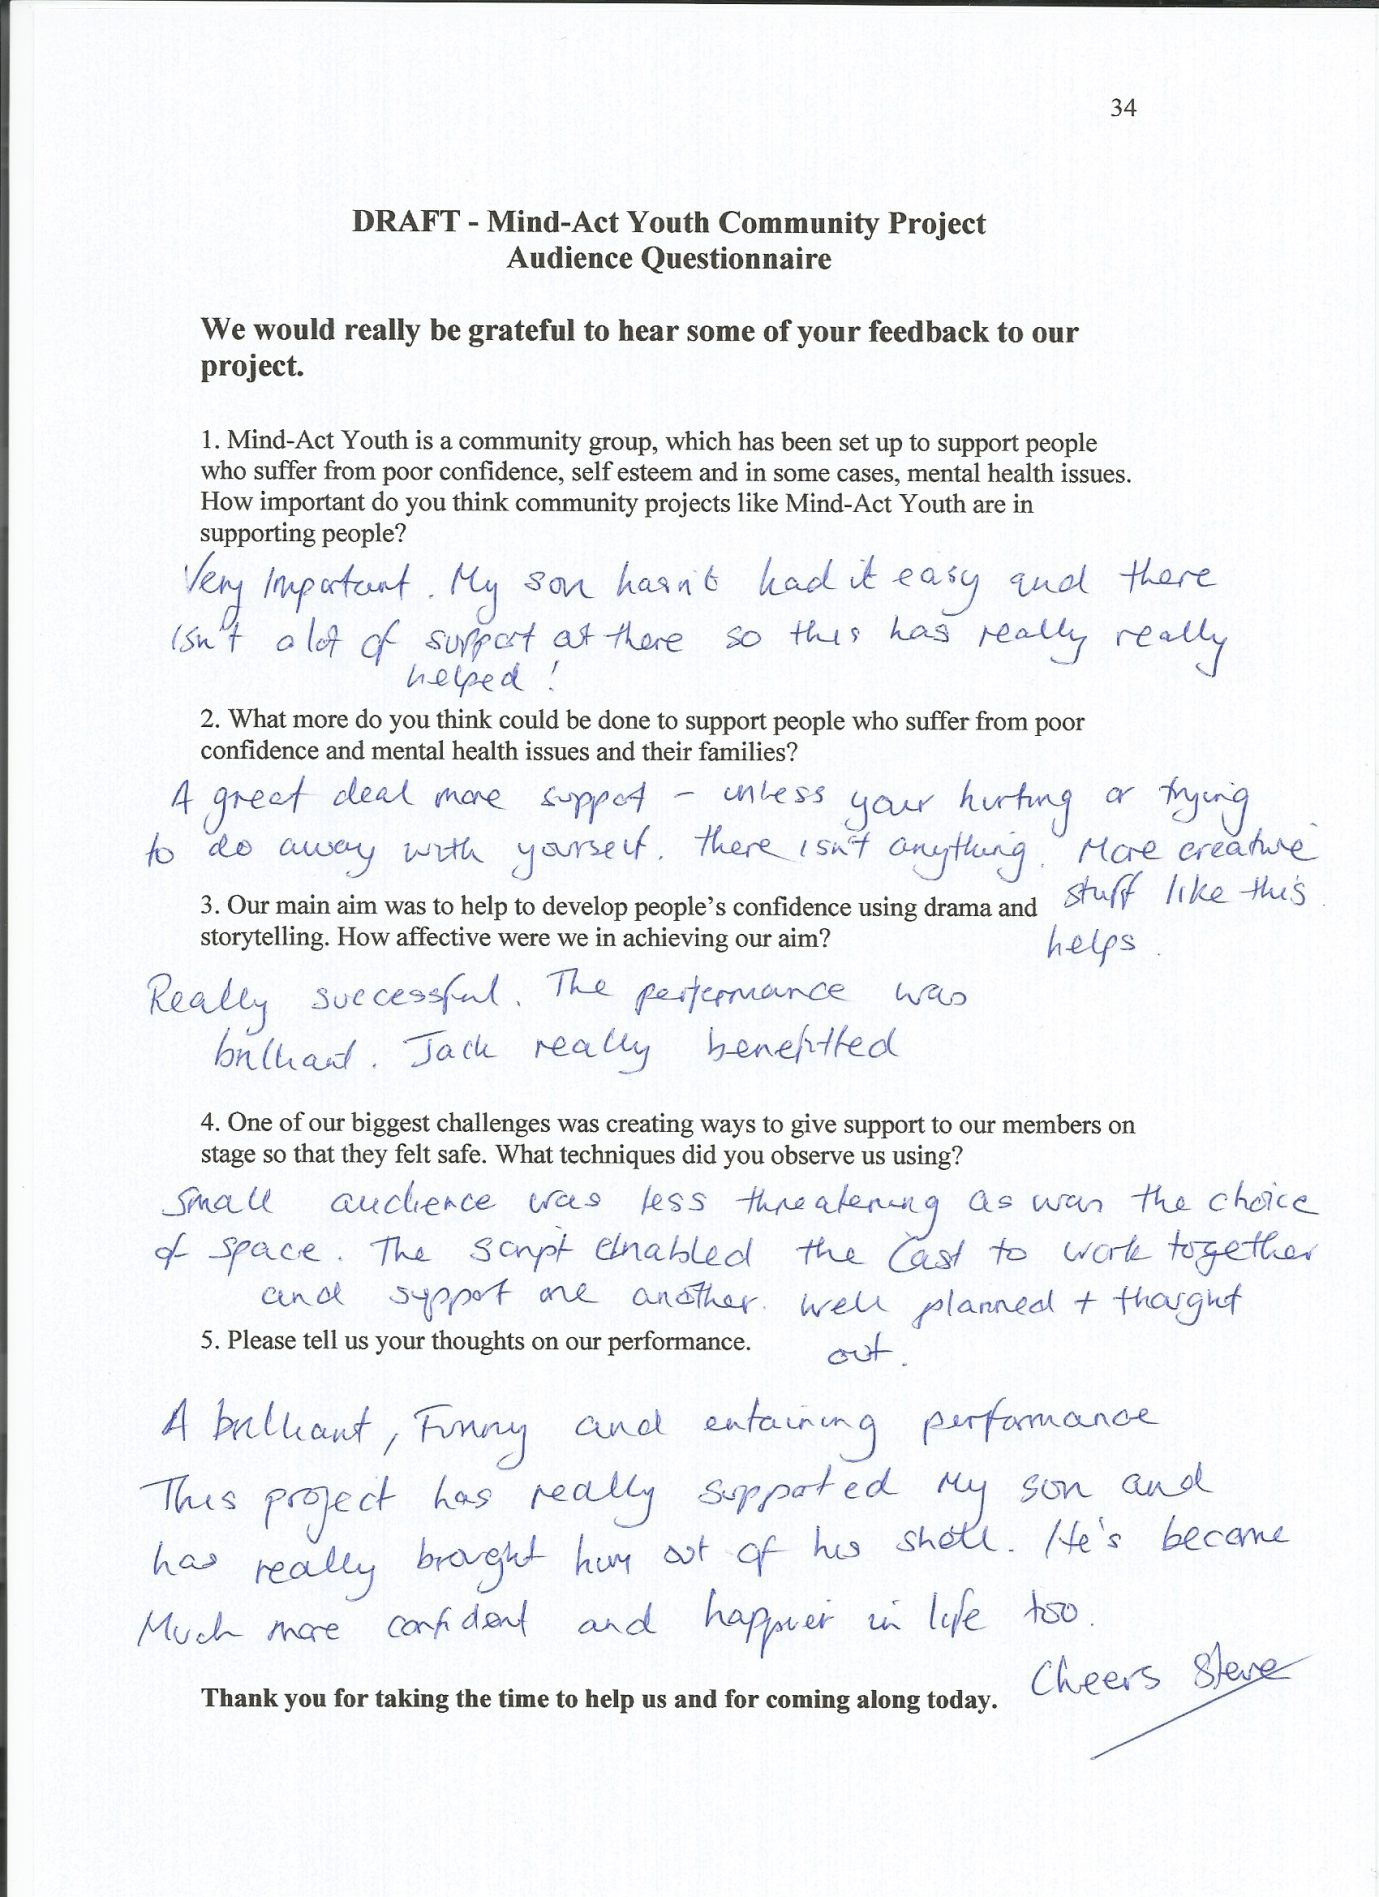 34
DRAFT - Mind-Act Youth Community Project
Audience Questionnaire
We would really be grateful to hear some of your feedback to our
project.
1. Mind-Act Youth is a community group, which has been set up to support people
who suffer from poor confidence, self esteem and in some cases, mental health issues.
How important do you think community projects like Mind-Act Youth are in
supporting people?
Very Important. My son hasn't had it easy and there
isn't a lot of support out there so this has really really
helped!
2. What more do you think could be done to support people who suffer from poor
confidence and mental health issues and their families?
A great deal more support - unless your hurting or trying
to do away with yourself. there isn't anything. More creative
stuff like this
helps.
3. Our main aim was to help to develop people's confidence using drama and
storytelling. How affective were we in achieving our aim?
Really successful. The performance was
brilliant. Jack really benefitted
4. One of our biggest challenges was creating ways to give support to our members on
stage so that they felt safe. What techniques did you observe us using?
Small audience was less threatening as was the choice
of space. The script enabled the cast to work together
and support one another. well planned + thought
out.
5. Please tell us your thoughts on our performance.
A brilliant, Funny and entaining performance
This project has really supported my son and
has really brought him out of his shell. He's become
Much more confident and happier in life too.
Cheers Steve
Thank you for taking the time to help us and for coming along today.